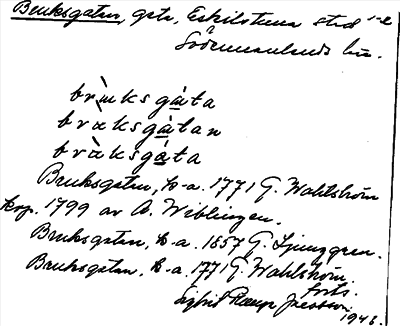 Bruksgatan, gata, Eskilstuna stad
Södermanlands län.
brùksgàta
bràksgàtan
bràksgàta
Bruksgatan, k-a. 1771 G. Wahlström
kop. 1799 av A. Wiblingen.
Bruksgatan, k-a. 1857 G. Ljunggren.
Bruksgatan, k-a. 1771 G. Wahlström
forts.
Sigbrit
1948.